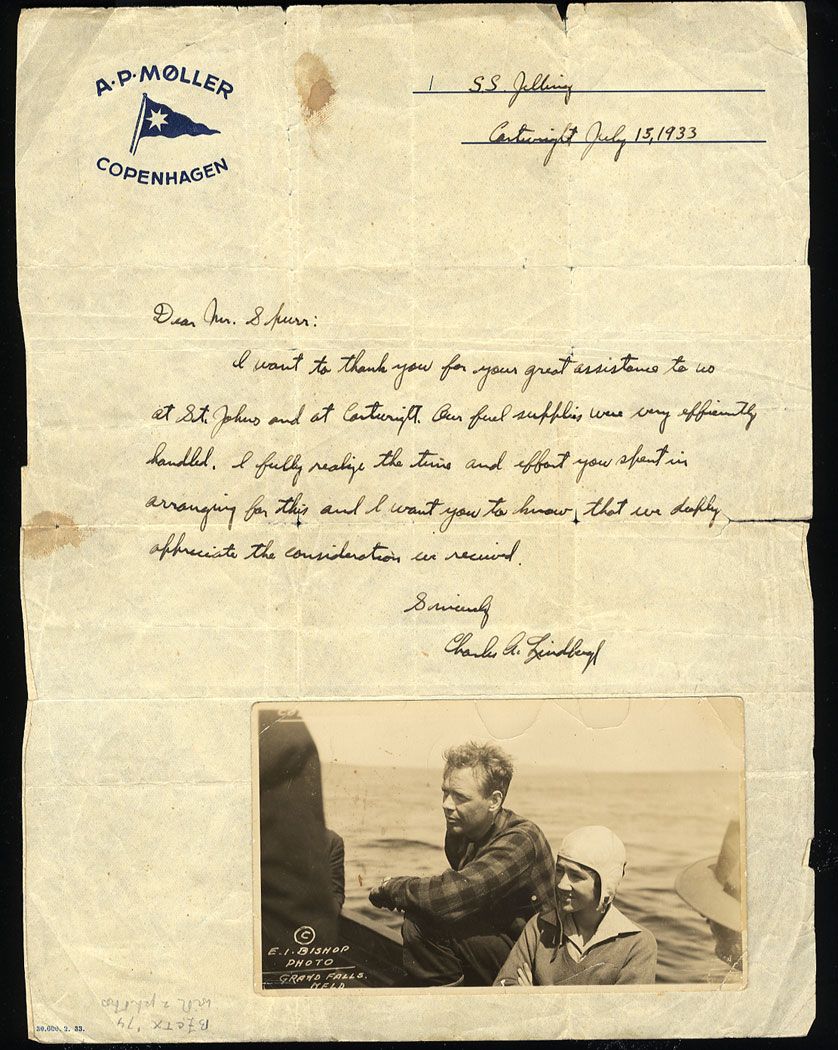 A·P·MØLLER
COPENHAGEN
S.S. Jelling
Cartwright July 15, 1933
Dear Mr. Spurr:
I want to thank you for your great assistance to us
at St. Johns and at Cartwright. Our fuel supplies were very efficiently
handled. I fully realize the time and effort you spent in
arranging for this and I want you to know, that we deeply
appreciate the consideration we received.
Sincerely
Charles A. Lindbergh
©
E.I. BISHOP
PHOTO
GRAND FALLS.
NFLD
30.000. 2. 33.